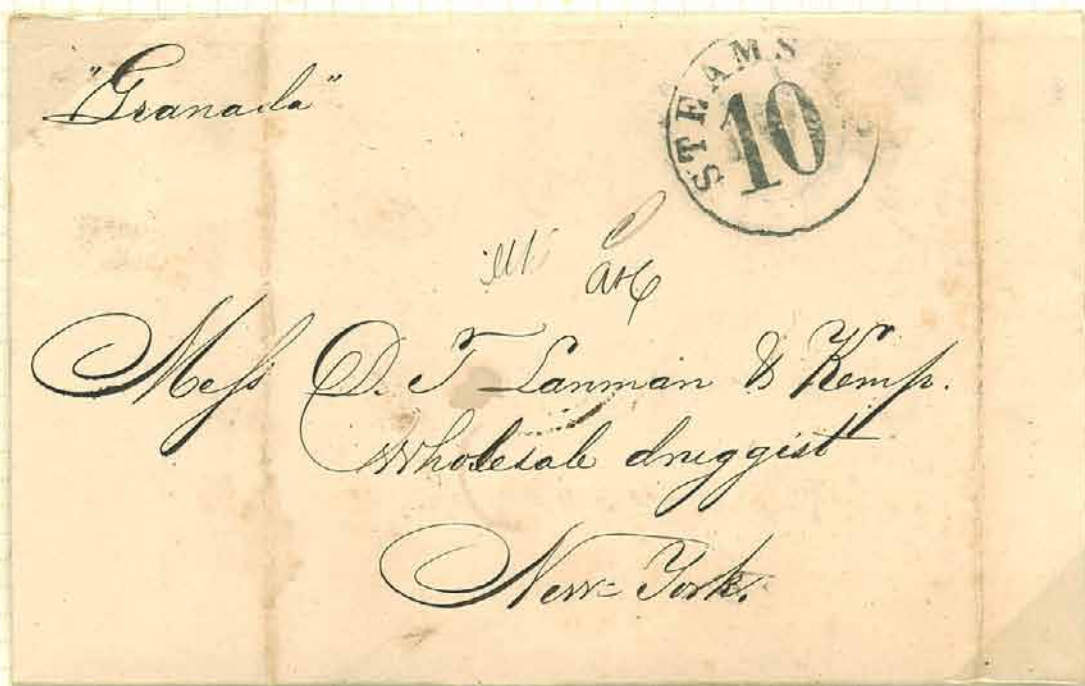 "Granada"
STEAMS
10
Mess D. T Lanman & Kemp.
Wholesale druggist
New=York.